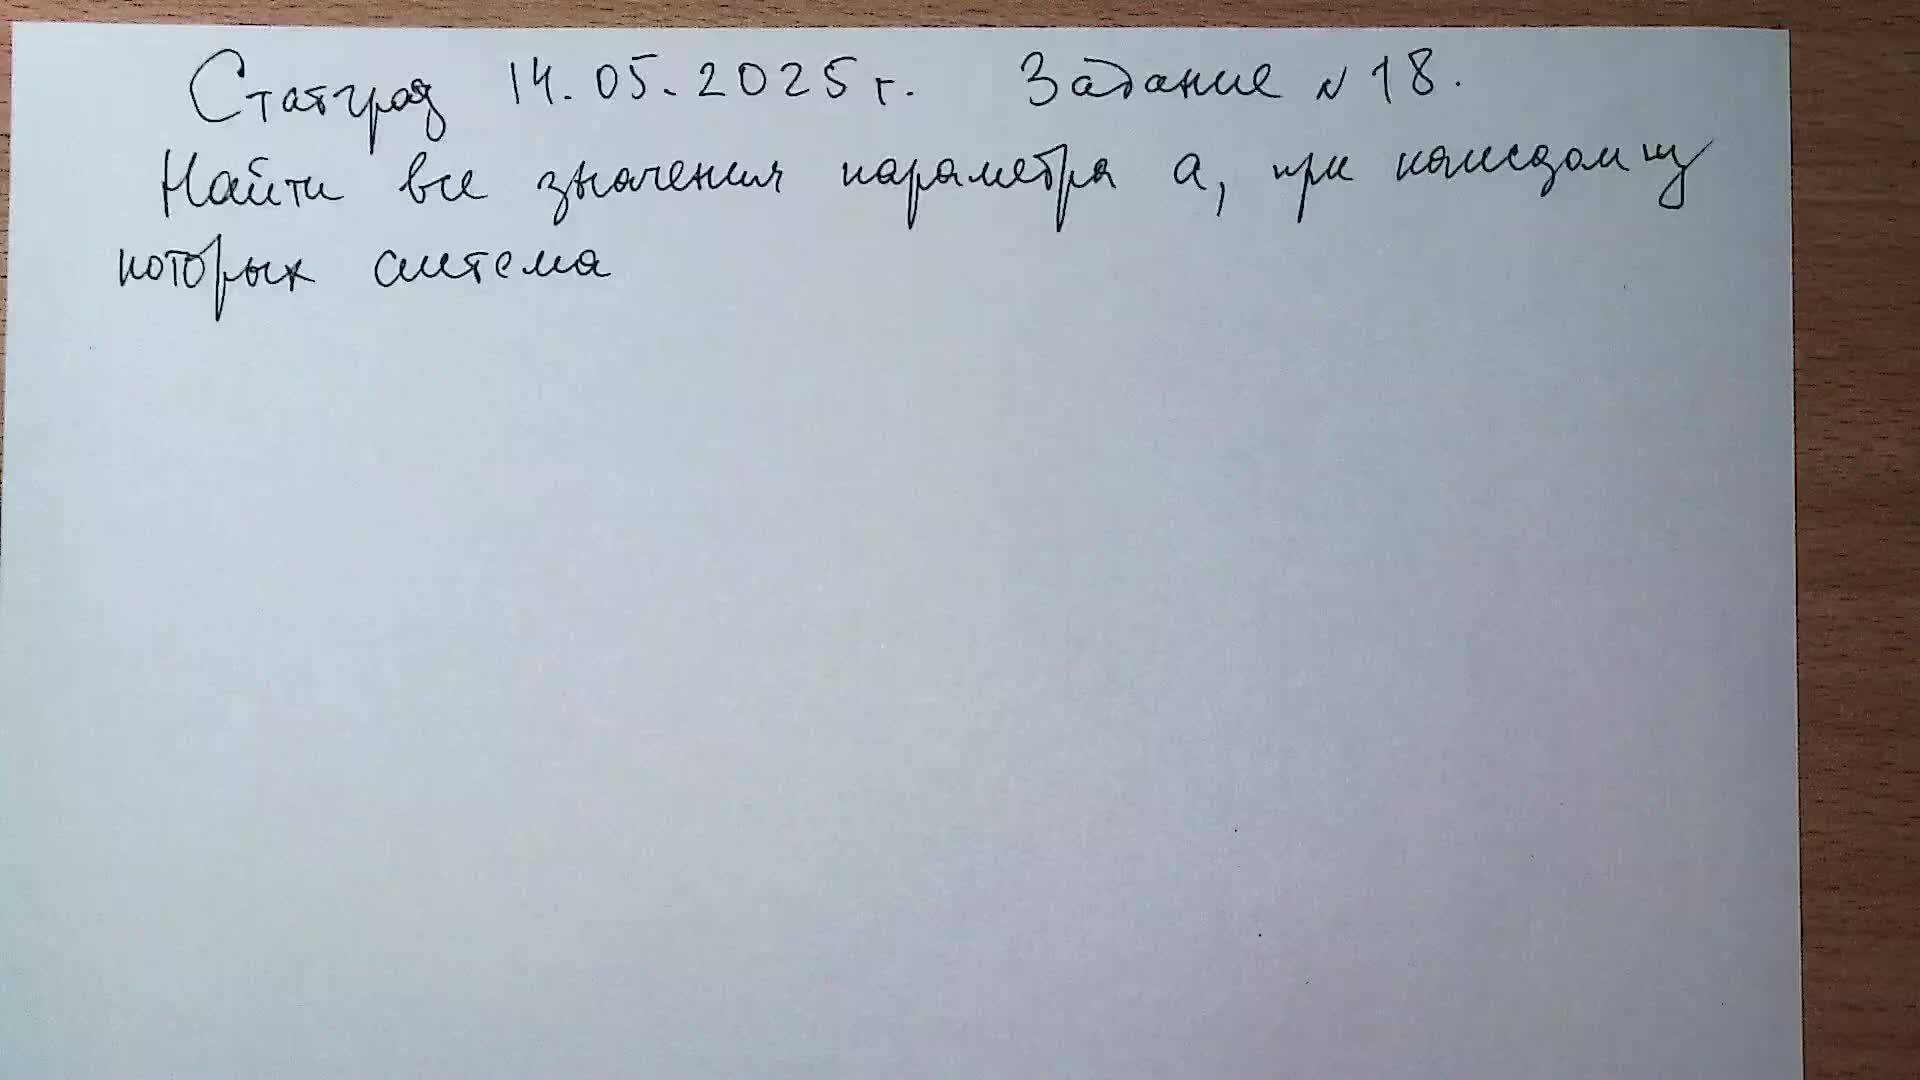 Статград 14.05.2025 г. Задание № 18.
Найти все значения параметра а, при каждом из
которых система